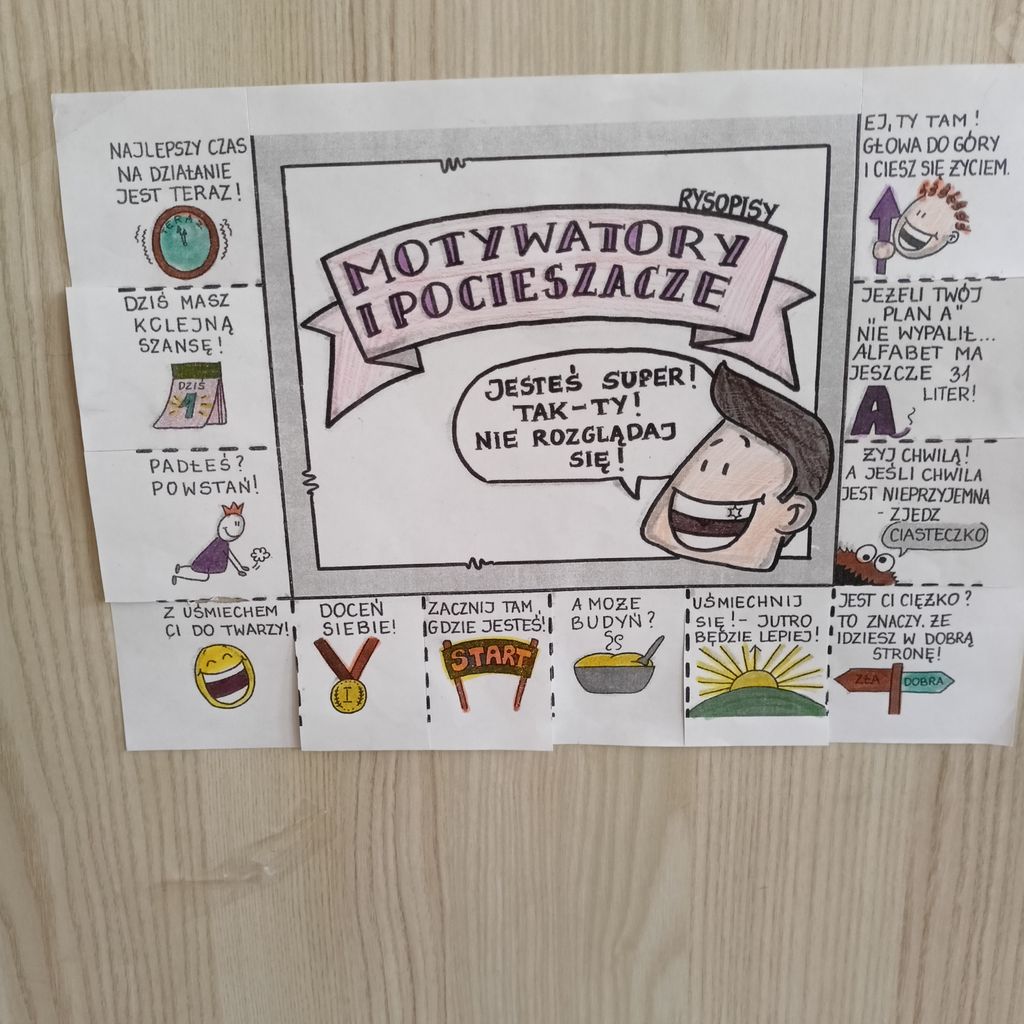 NAJLEPSZY CZAS
NA DZIAŁANIE
JEST TERAZ!
TERAZ
DZIŚ MASZ
KOLEJNĄ
SZANSĘ!
DZIŚ
1
PADŁEŚ?
POWSTAŃ!
RYSOPISY
MOTYWATORY
I POCIESZACZE
JESTEŚ SUPER!
TAK-TY!
NIE ROZGLĄDAJ
SIĘ!
EJ, TY TAM!
GŁOWA DO GÓRY
I CIESZ SIĘ ŻYCIEM.
JEŻELI TWÓJ
„PLAN A"
NIE WYPALIŁ...
ALFABET MA
JESZCZE 31
LITER!
A
ŻYJ CHWILĄ!
A JEŚLI CHWILA
JEST NIEPRZYJEMNA
- ZJEDZ
CIASTECZKO
Z UŚMIECHEM
CI DO TWARZY!
DOCEŃ
SIEBIE!
I
ZACZNIJ TAM,
GDZIE JESTEŚ!
START
A MOŻE
BUDYŃ?
UŚMIECHNIJ
SIĘ! - JUTRO
BĘDZIE LEPIEJ!
JEST CI CIĘŻKO?
TO ZNACZY, ŻE
IDZIESZ W DOBRĄ
STRONĘ!
ZŁA
DOBRA